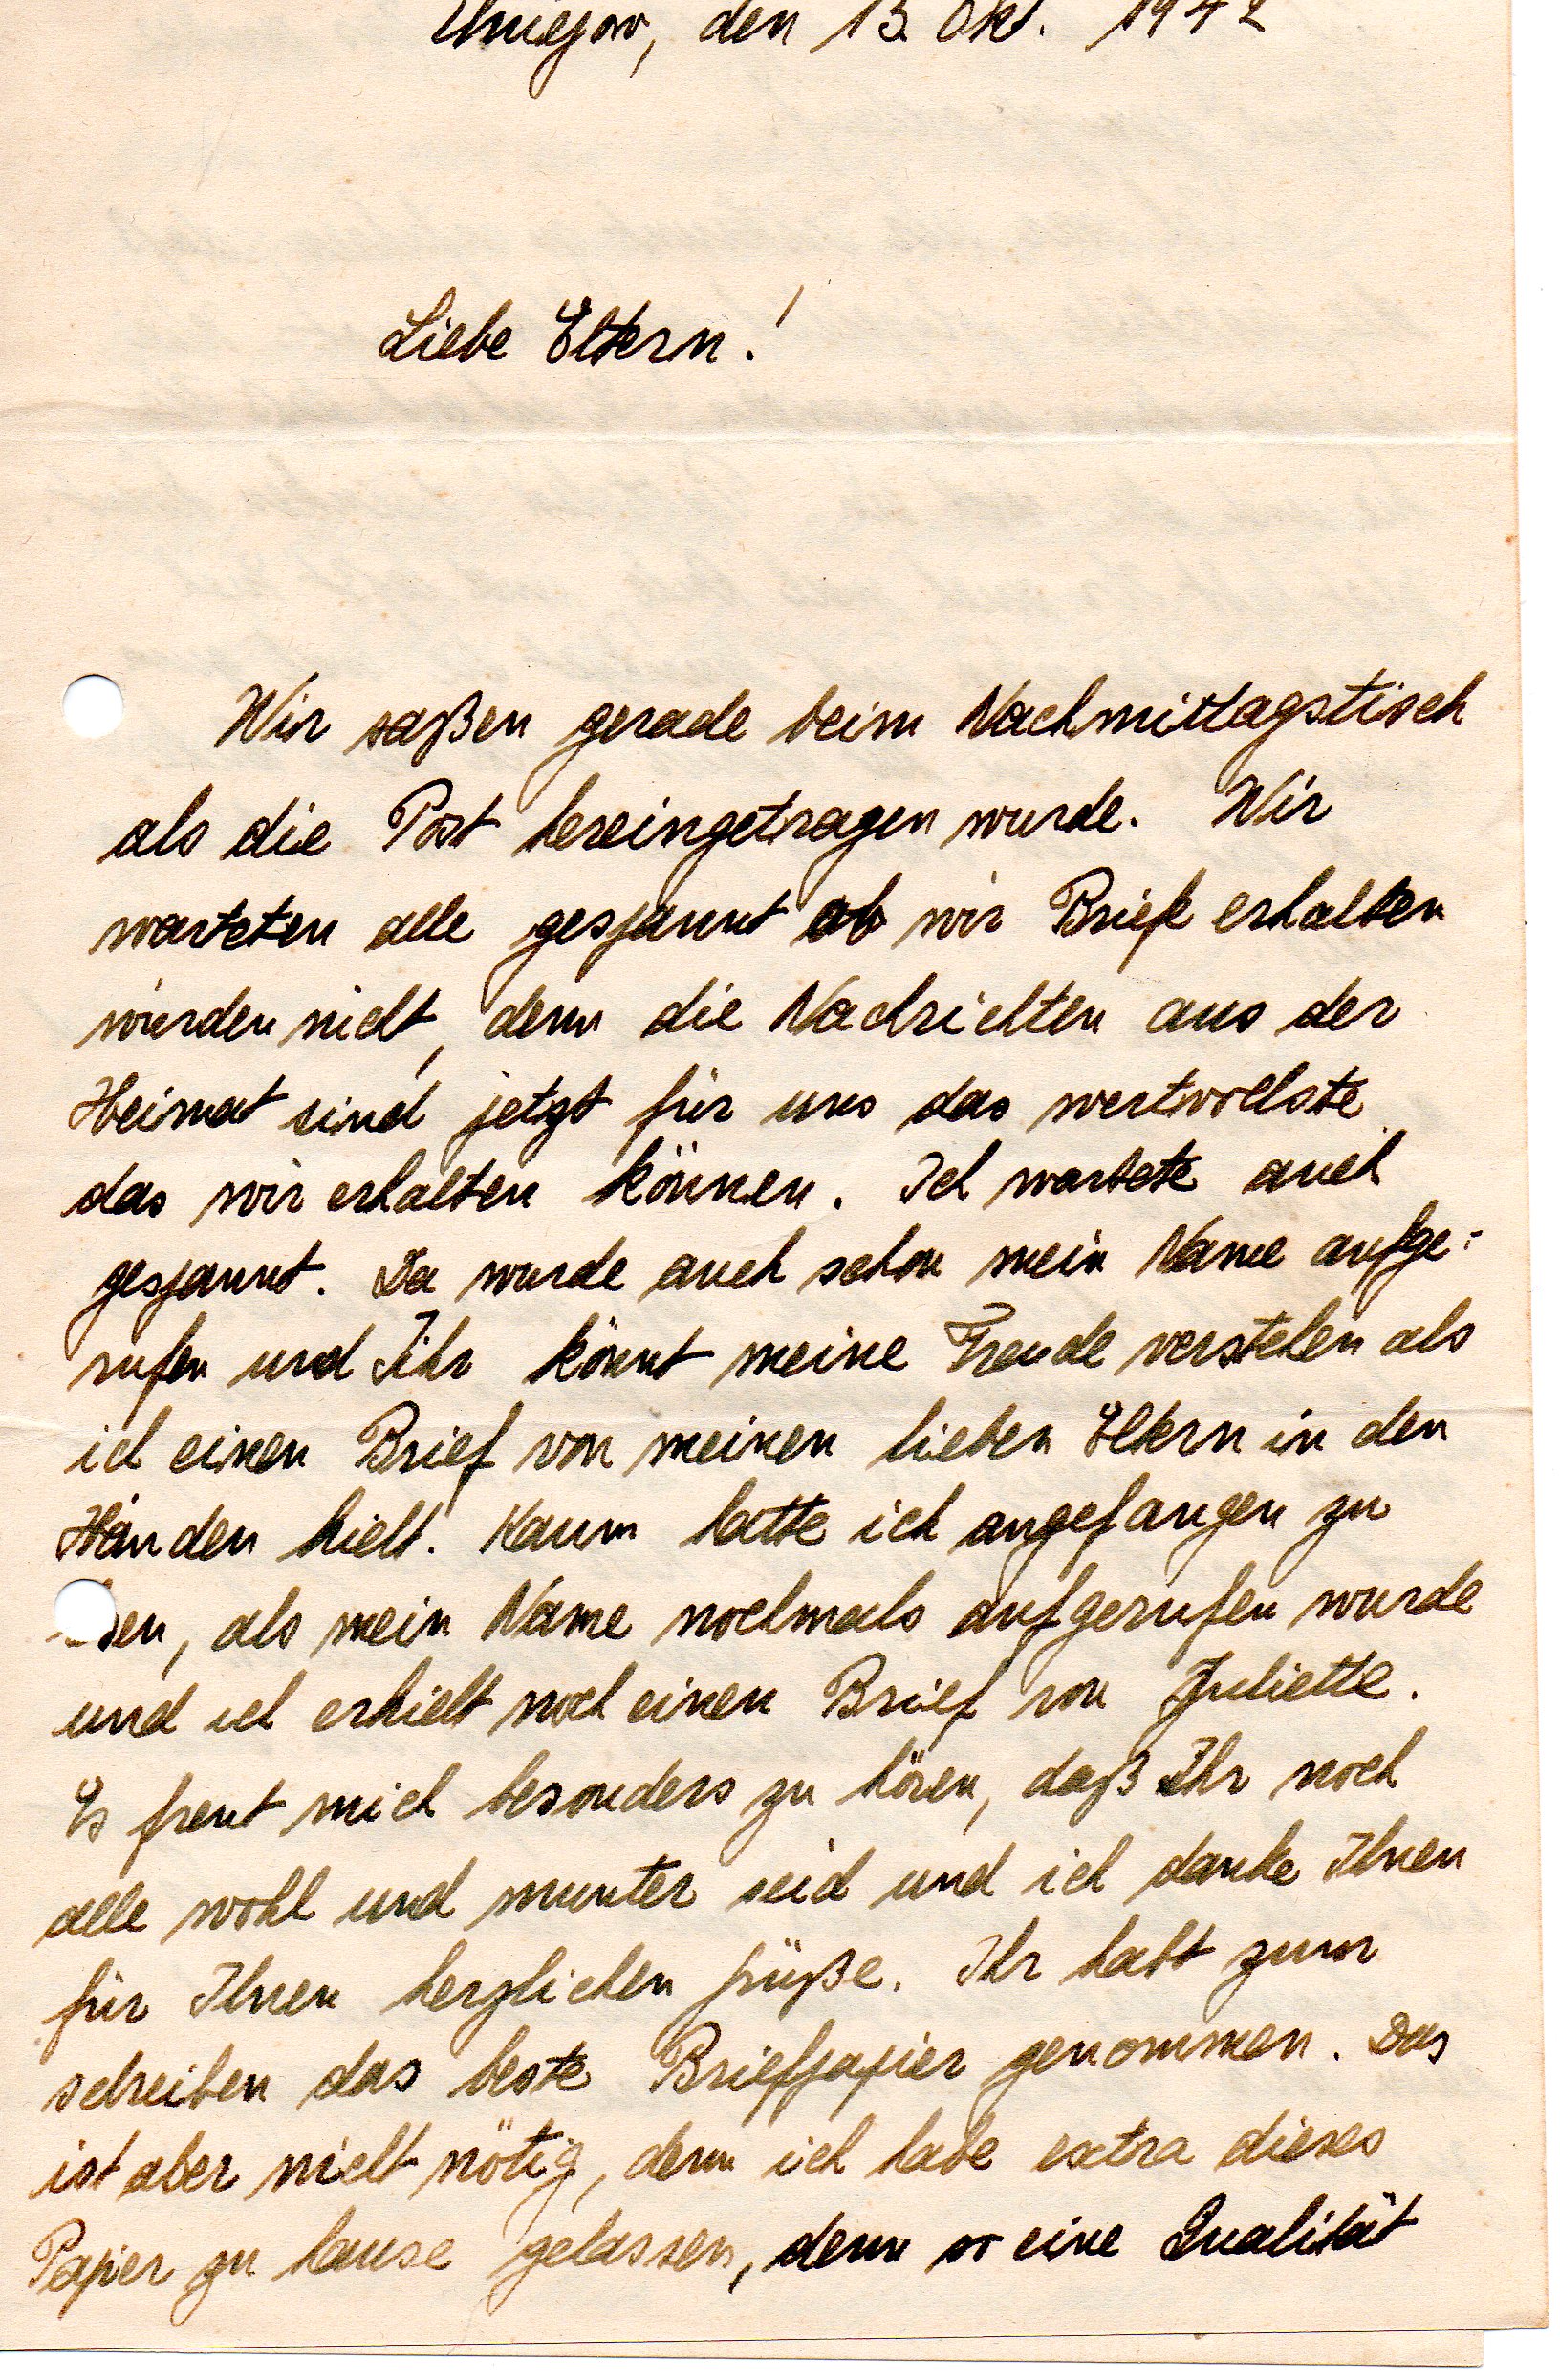 den 13. Okt. 1942
Liebe Eltern!
Wir saßen gerade beim Nachmittagstisch
als die Post hereingetragen wurde. Wir
warteten alle gespannt ob wir Briefe erhalten
würden nicht, denn die Nachrichten aus der
Heimat sind jetzt für uns das wertvollste
das wir erhalten können. Ich wartete auch
gespannt. Da wurde auch schon mein Name aufge-
rufen und Ihr könnt meine Freude verstehen als
ich einen Brief von meinen lieben Eltern in den
Händen hielt. Kaum hatte ich angefangen zu
sen, als mein Name nochmals aufgerufen wurde
und ich erhielt noch einen Brief von Juliette.
Es freut mich besonders zu hören, daß Ihr noch
alle wohl und munter seid und ich danke Ihnen
für Ihnen herzlichen Grüße. Ihr habt zum
schreiben das beste Briefpapier genommen. Das
ist aber nicht nötig, denn ich habe extra dieses
Papier zu hause gelassen, denn so eine Qualität